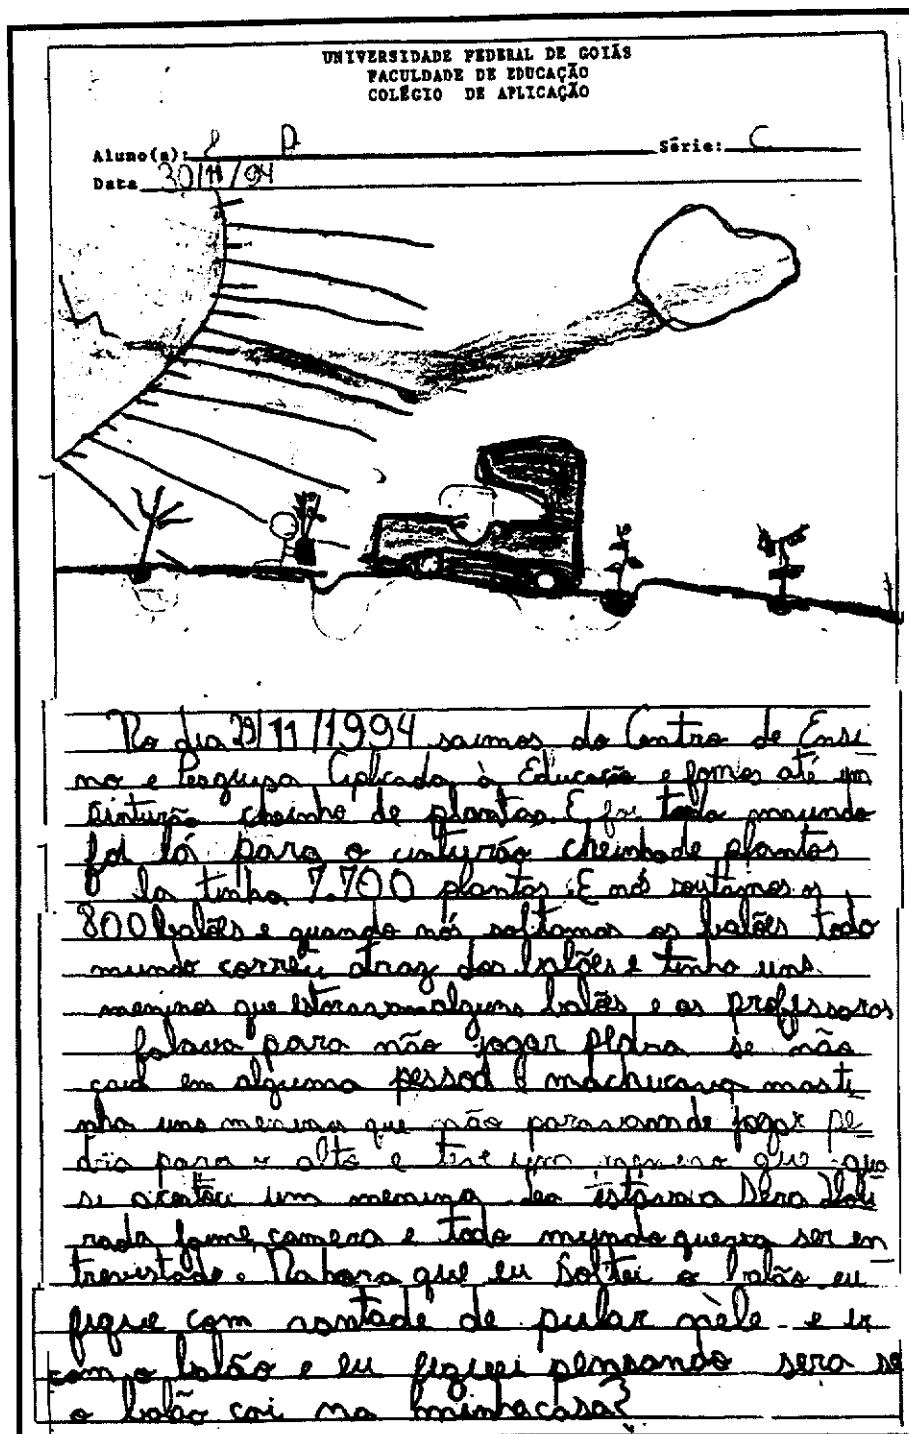 UNIVERSIDADE FEDERAL DE GOIÁS
FACULDADE DE EDUCAÇÃO
COLÉGIO DE APLICAÇÃO
Aluno(a): Série: C
Data 30/11/94
No dia 29/11/1994 saimos do Centro de Ensi
no e Pesquisa Aplicada à Educação e fomos até um
sinturão cheinho de plantas. E foi todo maundo
foi lá para o cinturão cheinho de plantas
la tinha 7.700 plantas. E nós soutamos os
800 balões e quando nós soltamos os balões todo
mundo correu atraz dos balões e tinha uns
meninos que estoravam alguns balões e os professoras
falava para não jogar pedra se não
caia em alguma pessoa e machucava mas ti
nha uns meninos que não paravam de jogar pe
dra para o alto e teve um menino que qua
si acertou um menino. estava Serra Dou
rada camera e todo mundo queria ser en
trevistado. Na hora que eu soltei o balão eu
fique com vontade de pular nele e ir
com o balão e eu fiquei pensando sera se
o balão cai na minha casa?